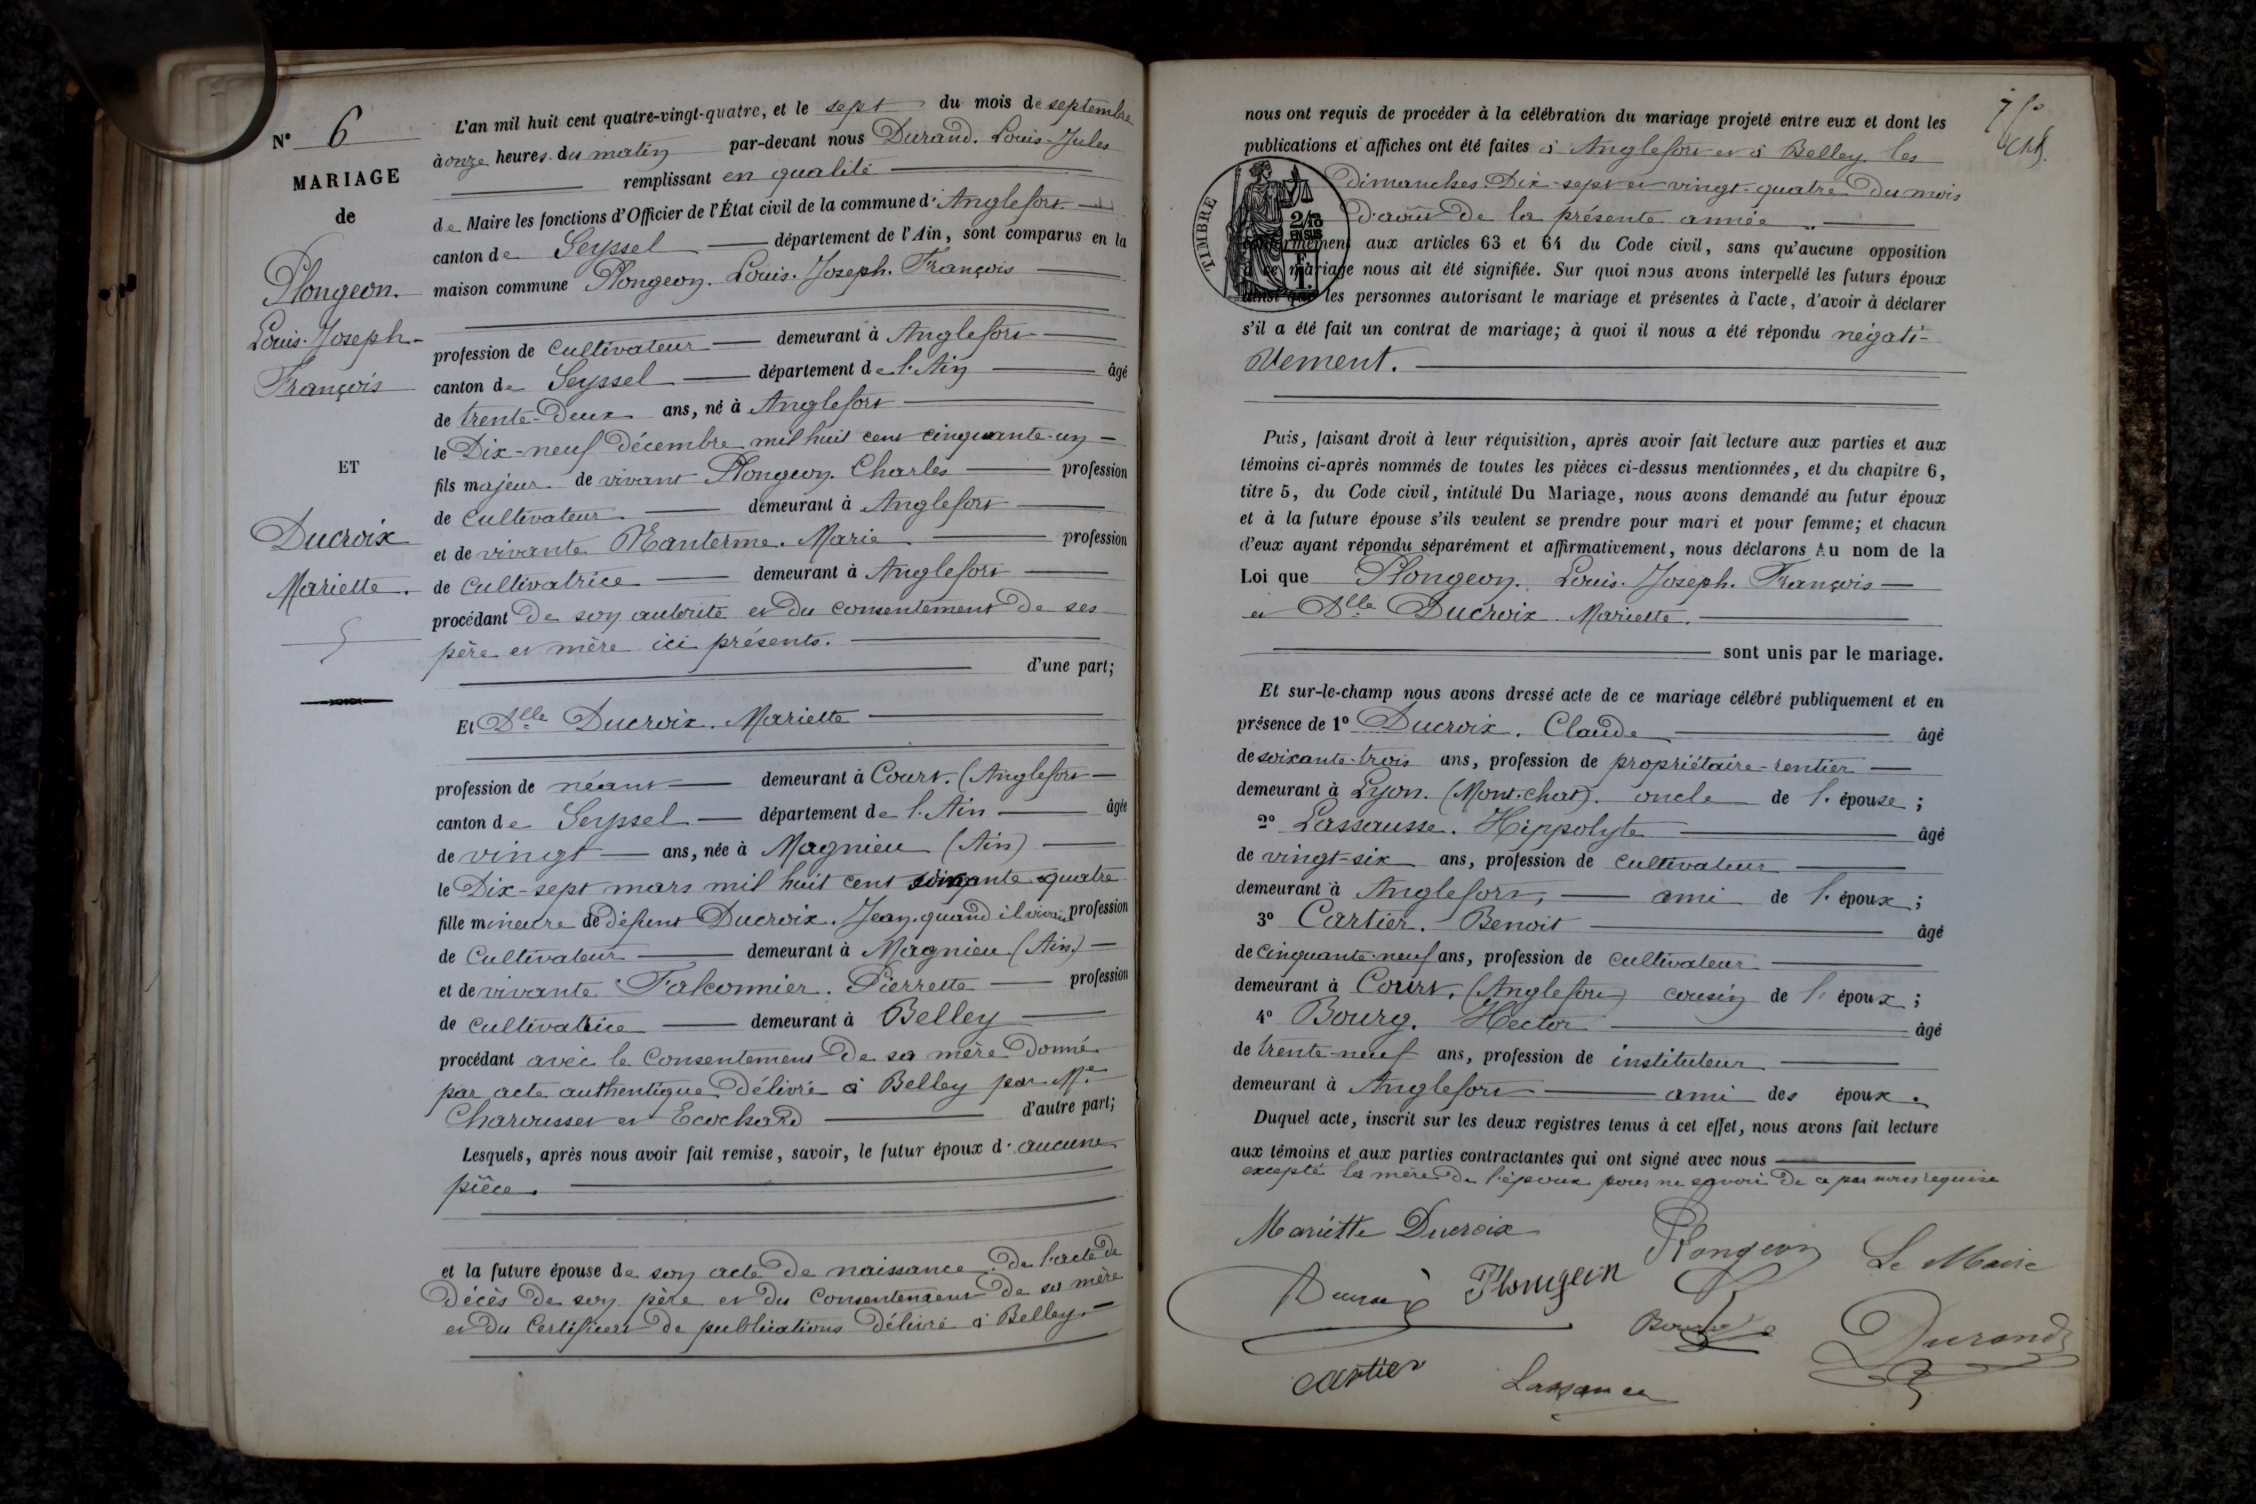 N° 6
MARIAGE
de
Plongeon.
Louis-Joseph-
François
ET
Ducroix
Mariette.
L'an mil huit cent quatre-vingt-quatre, et le sept du mois de septembre
à onze heures du matin par-devant nous Durand. Louis-Jules
remplissant en qualité
de Maire les fonctions d'Officier de l'État civil de la commune d'Anglefort
canton de Seyssel département de l'Ain, sont comparus en la
maison commune Plongeon. Louis. Joseph. François
profession de cultivateur demeurant à Anglefort
canton de Seyssel département de l'Ain âgé
de trente-deux ans, né à Anglefort
le Dix-neuf Décembre mil huit cent cinquante-un
fils majeur de vivant Plongeon. Charles profession
de cultivateur demeurant à Anglefort
et de vivante Manterme. Marie profession
de cultivatrice demeurant à Anglefort
procédant de son autorité et du consentement de ses
père et mère ici présents.
d'une part;
Et Dlle Ducroix. Mariette
profession de néant demeurant à Court. (Anglefort
canton de Seyssel département de l'Ain âgée
de vingt ans, née à Magnieu (Ain)
le Dix-sept mars mil huit cent soixante quatre
fille mineure de défunt Ducroix. Jean. quand il vivait profession
de cultivateur demeurant à Magnieu (Ain)
et de vivante Falconnier. Pierrette profession
de cultivatrice demeurant à Belley
procédant avec le consentement de sa mère donné
par acte authentique délivré à Belley par Me
Charousset et Ecochard d'autre part;
Lesquels, après nous avoir fait remise, savoir, le futur époux d'aucune
pièce.
et la future épouse de son acte de naissance. de l'acte de
décès de son père et du consentement de sa mère
et du certificat de publications délivré à Belley
nous ont requis de procéder à la célébration du mariage projeté entre eux et dont les
publications et affiches ont été faites à Anglefort et à Belley les
dimanches Dix-sept et vingt-quatre du mois
d'août de la présente année
TIMBRE
2/10
EN SUS
conformément aux articles 63 et 64 du Code civil, sans qu'aucune opposition
à ce mariage nous ait été signifiée. Sur quoi nous avons interpellé les futurs époux
ainsi que les personnes autorisant le mariage et présentes à l'acte, d'avoir à déclarer
s'il a été fait un contrat de mariage; à quoi il nous a été répondu négati-
vement.
Puis, faisant droit à leur réquisition, après avoir fait lecture aux parties et aux
témoins ci-après nommés de toutes les pièces ci-dessus mentionnées, et du chapitre 6,
titre 5, du Code civil, intitulé Du Mariage, nous avons demandé au futur époux
et à la future épouse s'ils veulent se prendre pour mari et pour femme; et chacun
d'eux ayant répondu séparément et affirmativement, nous déclarons Au nom de la
Loi que Plongeon. Louis. Joseph. François
et Dlle Ducroix. Mariette.
sont unis par le mariage.
Et sur-le-champ nous avons dressé acte de ce mariage célébré publiquement et en
présence de 1° Ducroix. Claude âgé
de soixante-trois ans, profession de propriétaire-rentier
demeurant à Lyon. (Mont-chat). oncle de l'épouse;
2° Lassausse. Hippolyte âgé
de vingt-six ans, profession de cultivateur
demeurant à Anglefort, ami de l'époux;
3° Cartier. Benoit âgé
de cinquante-neuf ans, profession de cultivateur
demeurant à Court. (Anglefort) cousin de l'époux;
4° Bourg. Hector âgé
de trente-neuf ans, profession de instituteur
demeurant à Anglefort ami des époux.
Duquel acte, inscrit sur les deux registres tenus à cet effet, nous avons fait lecture
aux témoins et aux parties contractantes qui ont signé avec nous
excepté la mère de l'époux pour ne savoir de ce par nous requise
Mariette Ducroix
Plongeon
Le Maire
Ducroix
Plongeon
Bourg
Durand
Cartier
Lassausse